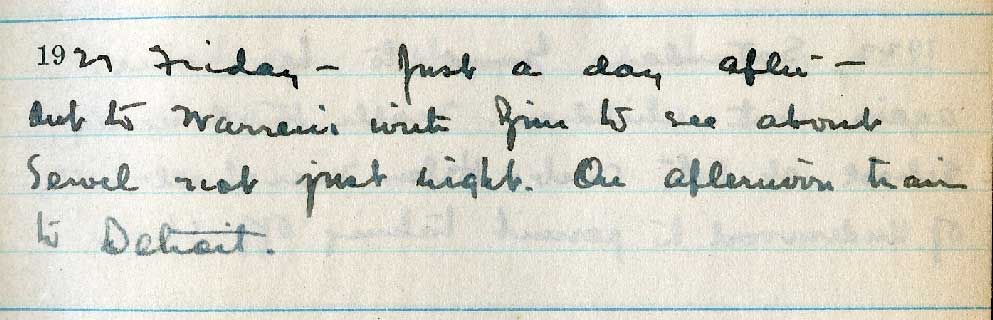 1927 Friday – Just a day after –
Out to Warrens with Jim to see about
Servel not just right. On afternoon train
to Detroit.